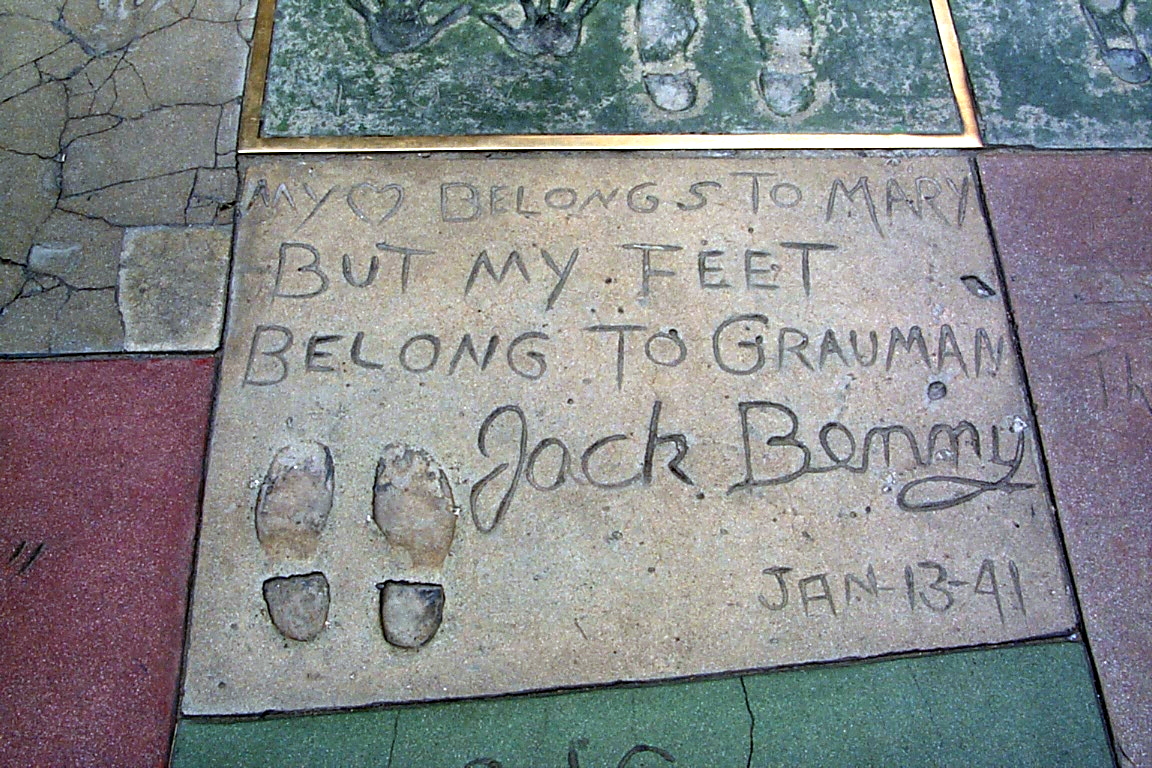 MY ♡ BELONGS TO MARY
BUT MY FEET
BELONG TO GRAUMAN
Jack Benny
JAN-13-41
Th